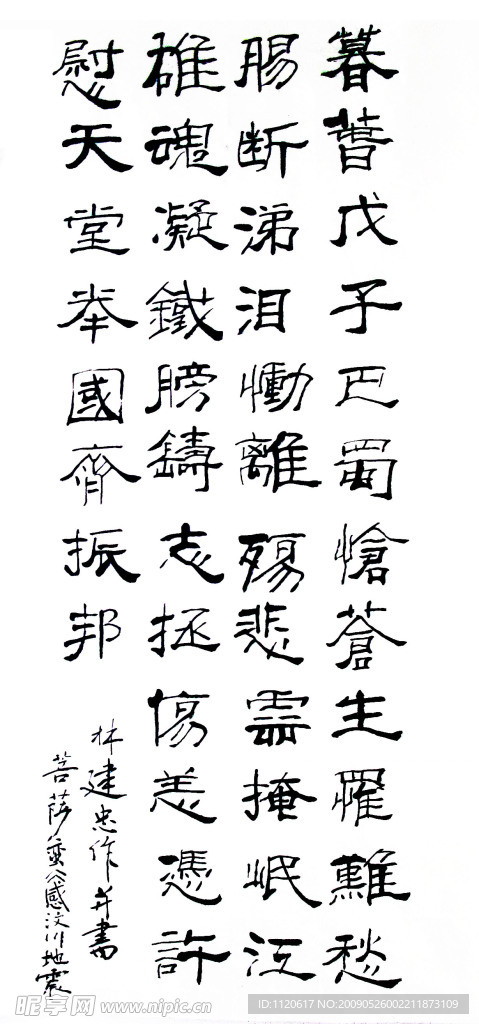 暮春戊子巴蜀愴蒼生罹難愁
腸断涕泪慟離殤悲雲掩岷江
雄魂凝鐵膀鑄志拯傷恙憑許
慰天堂举國齊振邦
林建忠作并書
菩萨蛮感汶川地震
昵享网 www.nipic.cn
ID:1120617 NO:20090526002211873109